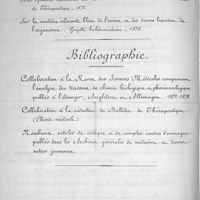 de Thérapeutique - 1877.
Sur la matière colorante bleue de l'urine et des divers liquides de
l'organisme. Gazette hebdomadaire - 1878.
Bibliographie.
Collaboration à la Revue des Sciences Médicales comprenant
l'analyse des travaux de chimie biologique et pharmacologique
publiés à l'étranger, Angleterre et Allemagne. 1877-1878.
Collaboration à la rédaction du Bulletin de Thérapeutique
(Chimie médicale).
Nombreux articles de critique et de comptes rendus d'ouvrages
publiés dans les Archives générales de médecine et divers
autres journaux.